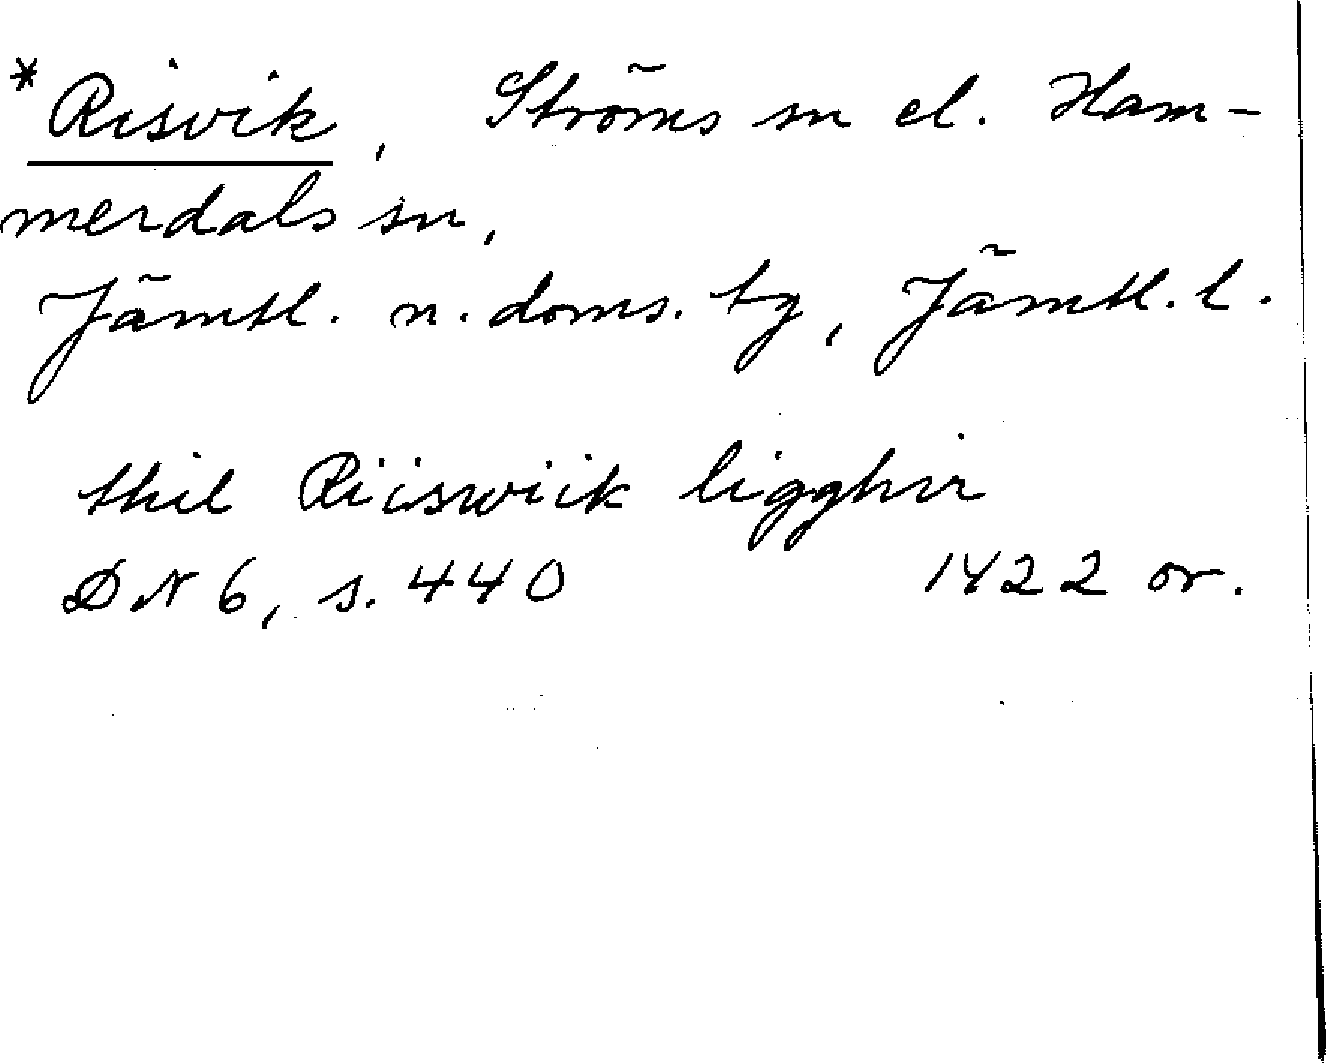 *Risvik, Ströms sn el. Ham-
merdals sn,
Jämtl. n. doms. tg, Jämtl. l.
thil Riiswiik ligghir
DN 6, s. 440 1422 or.